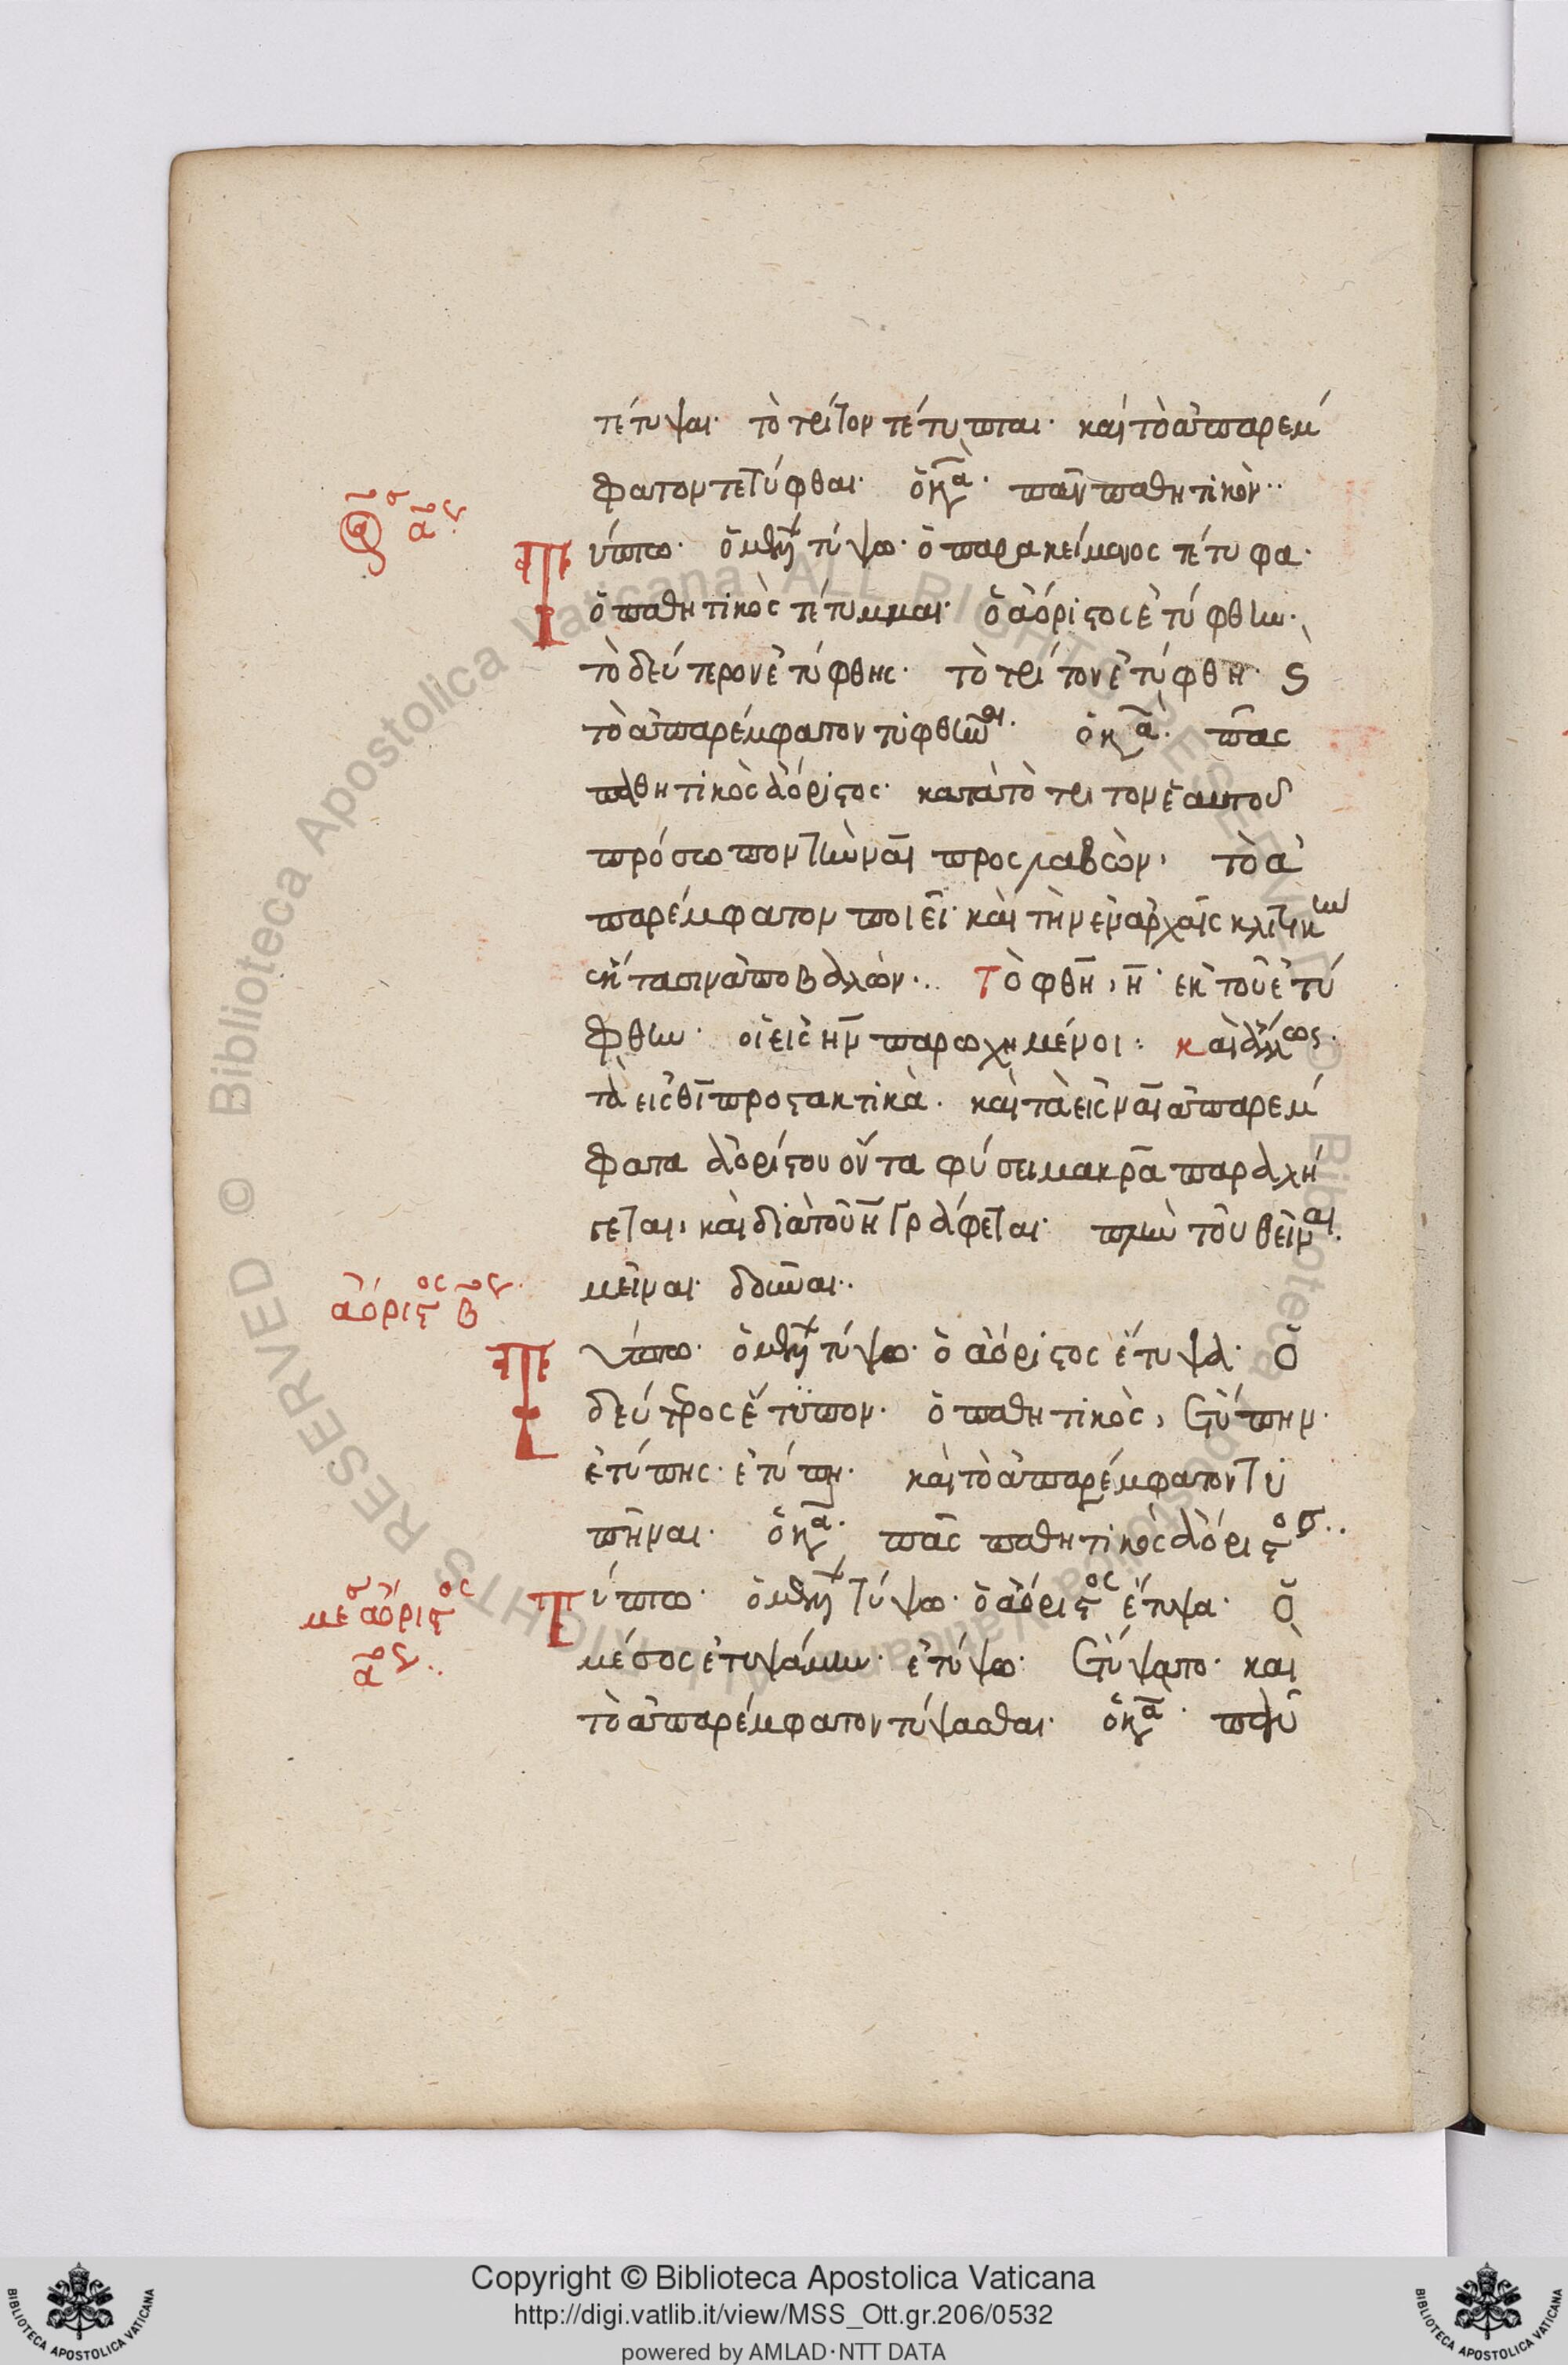 τέτυψαι· τὸ τρίτον τέτυπται· καὶ τὸ ἀπαρέμ
φατον τετύφθαι· ὁ κα· πᾶν παθητικὸν··
Τύπτω· ὁ μέλλων τύψω· ὁ παρακείμενος τέτυφα·
ὁ παθητικὸς τέτυμμαι· ὁ ἀόριστος ἐτύφθην·
τὸ δεύτερον ἐτύφθης· τὸ τρίτον ἐτύφθη· ϛ
τὸ ἀπαρέμφατον τυφθῆναι· ὁ κα· πᾶς
παθητικὸς ἀόριστος· κατὰ τὸ τρίτον ἑαυτοῦ
πρόσωπον τὴν ναι προσλαβὼν, τὸ ἀ
παρέμφατον ποιεῖ· καὶ τὴν ἐν ἀρχαῖς κλιτικὴν
ἔκτασιν ἀποβαλὼν·. Τὸ φθη, η· ἐκ τοῦ ἐτύ
φθην· οἱ εἰς ην παρωχημένοι: καὶ ἄλλως·
τὰ εἰς θι προστακτικὰ· καὶ τὰ εἰς ναι ἀπαρέμ
φατα ἀορίστου ὄντα φύσει μακρᾶ παραλή
γεται, καὶ διὰ τοῦ η γράφεται· πλὴν τοῦ θεῖναι·
μεῖναι· δοῦναι··
ἀόριστος β
Τύπτω· ὁ μέλλων τύψω· ὁ ἀόριστος ἔτυψα· ὁ
δεύτερος ἔτυπον· ὁ παθητικὸς, ἐτύπην·
ἐτύπης· ἐτύπη· καὶ τὸ ἀπαρέμφατον τυ
πῆναι· ὁ κα· πᾶς παθητικὸς ἀόριστος··
μέσος ἀόριστος
α
Τύπτω· ὁ μέλλων τύψω· ὁ ἀόριστος ἔτυψα· ὁ
μέσος ἐτυψάμην· ἐτύψω· ἐτύψατο· καὶ
τὸ ἀπαρέμφατον τύψασθαι· ὁ κα·
Copyright © Biblioteca Apostolica Vaticana
http://digi.vatlib.it/view/MSS_Ott.gr.206/0532
powered by AMLAD·NTT DATA